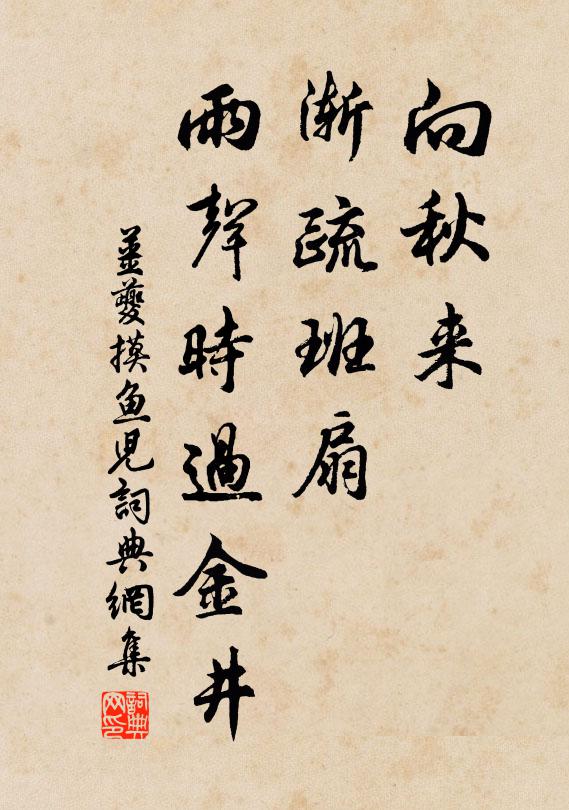 向秋来
渐疏班扇
雨聲時過金井
姜夔摸鱼児詞典網集
詞典网印